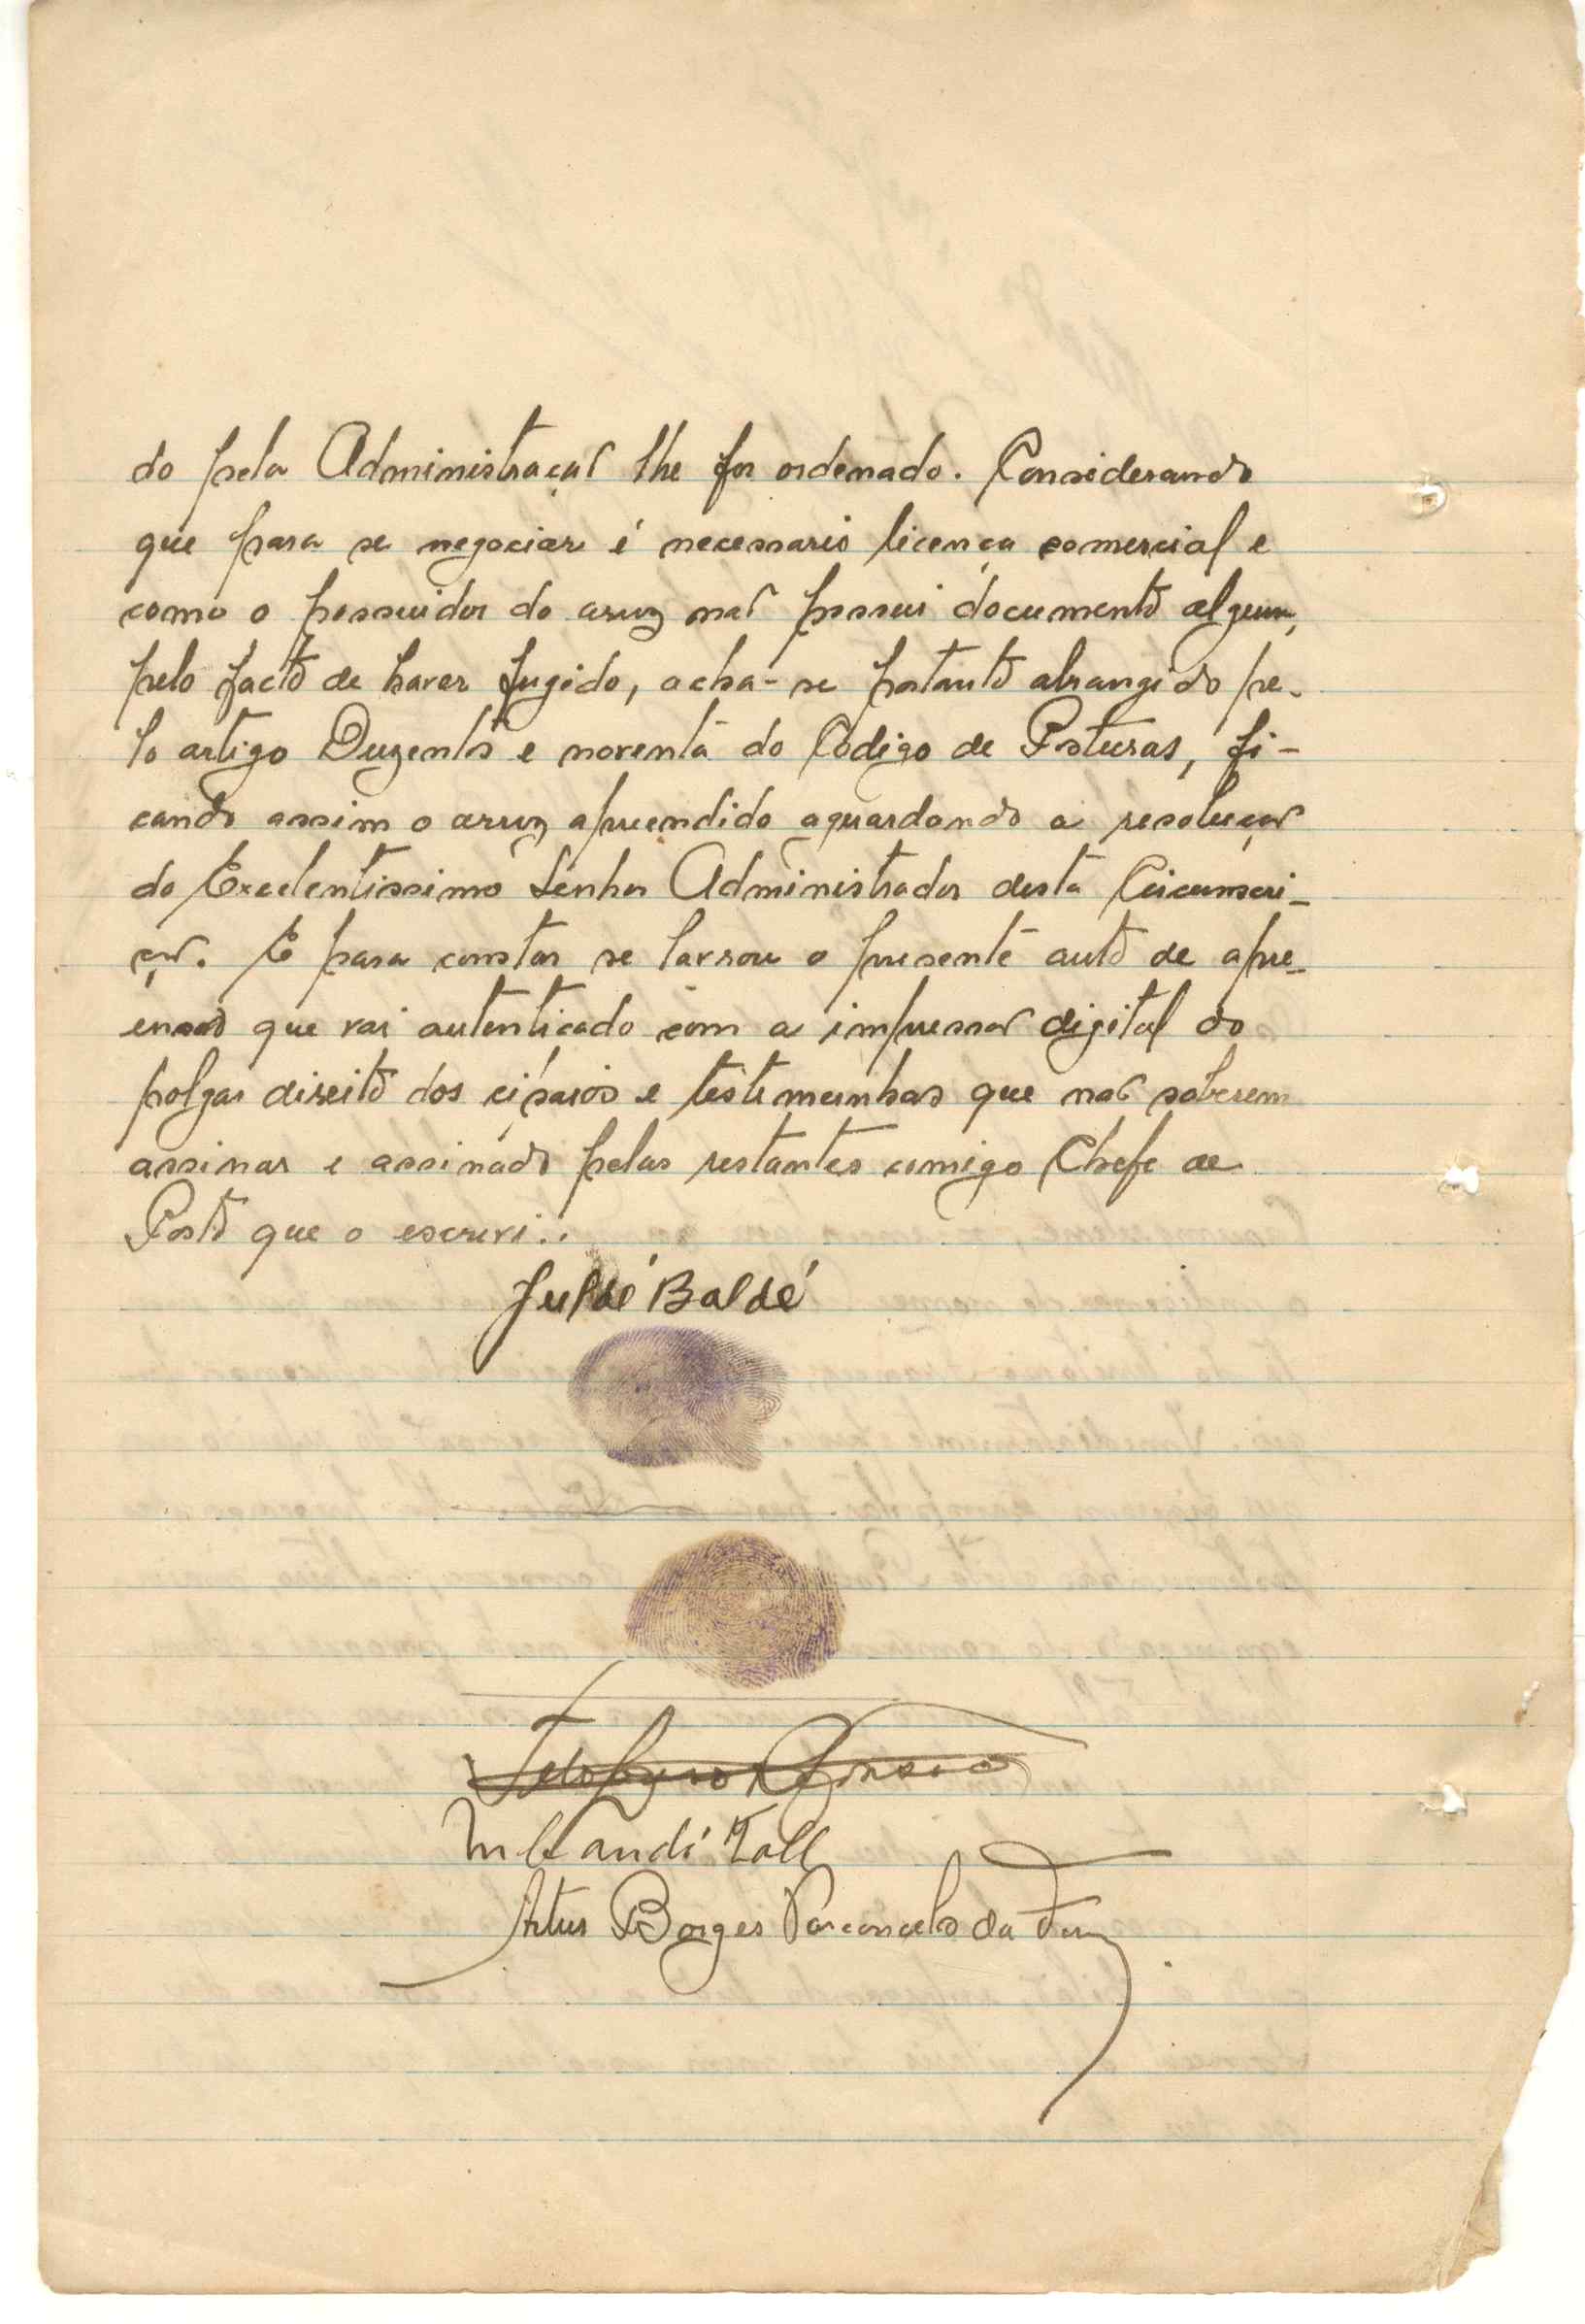 do pela Administração lhe for ordenado. Considerando
que para se negociar é necessario licença comercial e
como o possuidor do arroz não possui documento algum,
pelo facto de haver fugido, acha-se portanto abrangido pe-
lo artigo Duzentos e noventa do Codigo de Posturas, fi-
cando assim o arroz apreendido aguardando a resolução
do Excelentissimo Senhor Administrador desta Circunscri-
ção. E para constar se lavrou o presente auto de apre-
ensão que vai autenticado com a impressão digital do
polgar direito dos cipaios e testemunhas que não saberem
assinar e assinado pelas restantes comigo Chefe de
Posto que o escrevi..
Juldé Baldé
Artur Borges Vasconcelos da